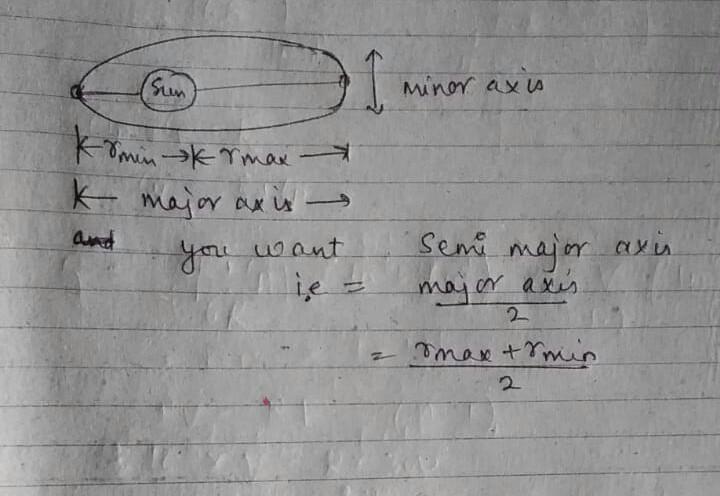 Sun
minor axis
rmin rmax
major axis
and you want semi major axis
i.e = major axis
2
= rmax + rmin
2